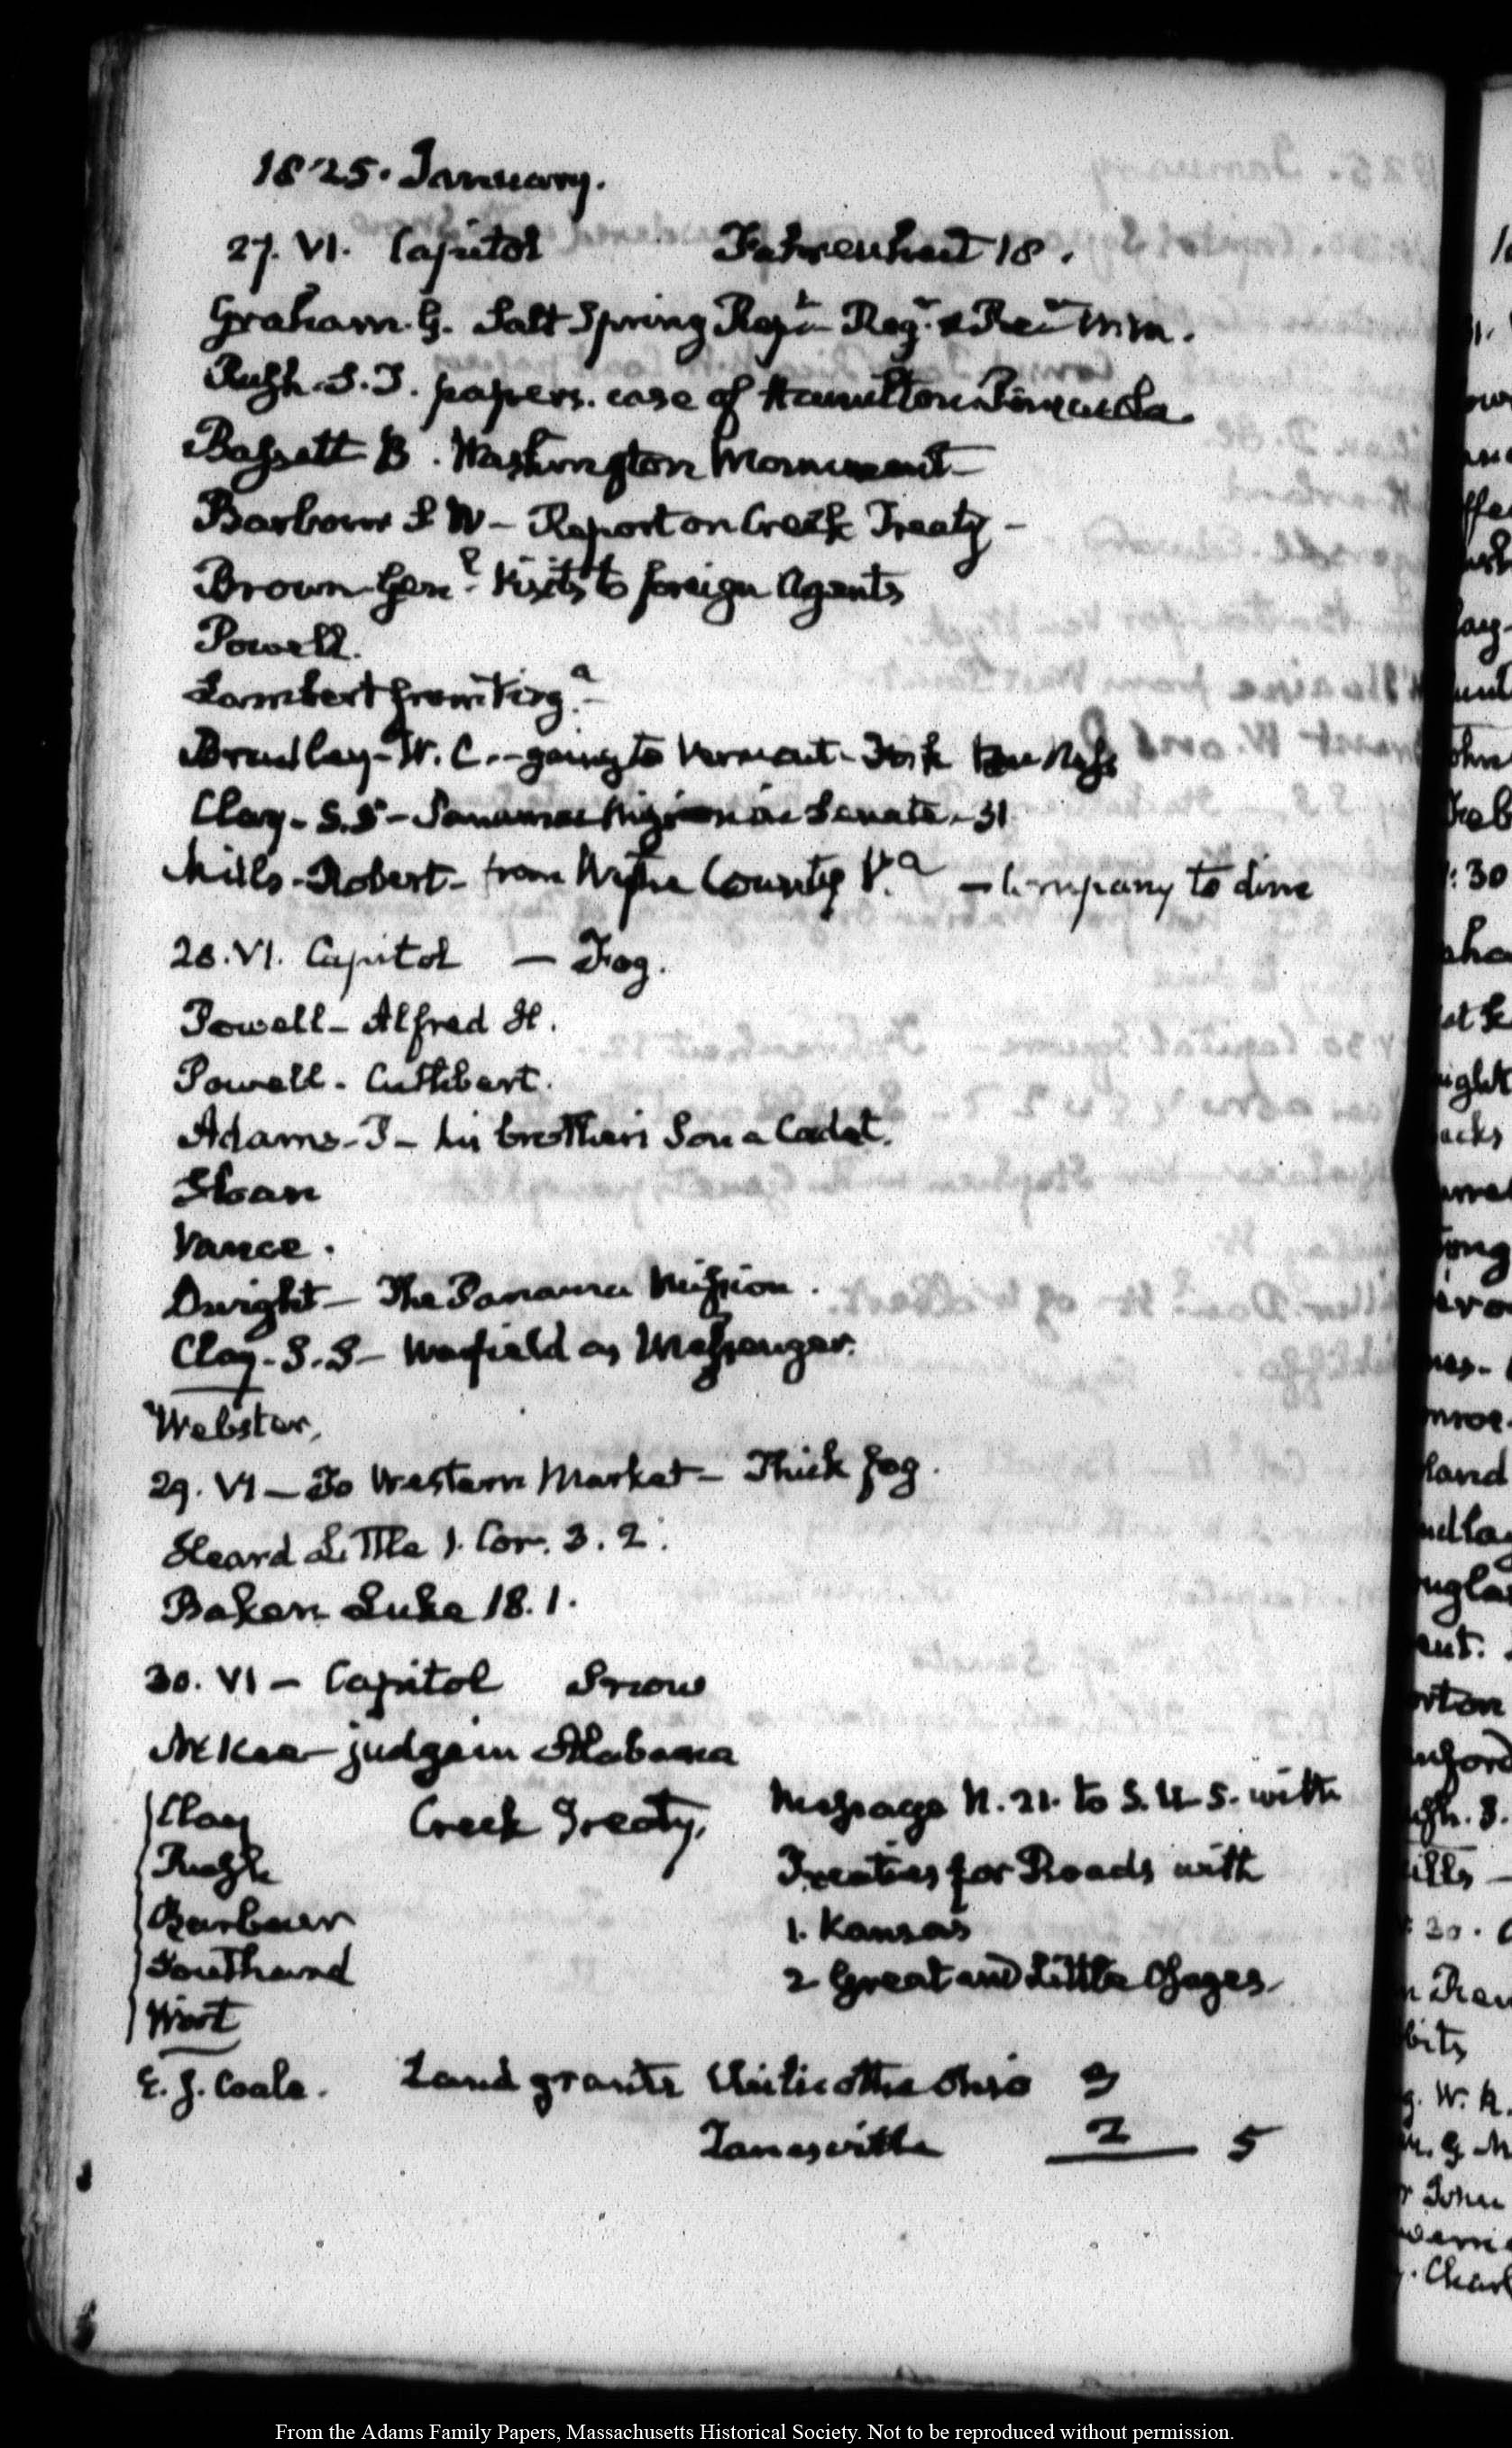 1825. January.
27. VI. Capitol Fahrenheit 18.
Graham. G. Salt Spring Reg.r & Rec.r
Rush. S.T. papers. case of Hamilton
Bassett B. Washington Monument—
Barbour S W— Report on Creek Treaty—
Brown Gen.l Visits to foreign Agents
Powell.
Lambert from Virg.a
Bradley— W. C.— going to Vermont—
Clay— S.S— Panama Mission in Senate— 31
Mills— Robert— from Wythe County V.a — Company to dine
28. VI. Capitol — Fog.
Powell— Alfred H.
Powell— Cuthbert.
Adams— P— his brother's Son a Cadet.
Sloan
Vance.
Dwight— The Panama Mission.
Clay— S.S— Warfield as Messenger.
Webster.
29. VI— To Western Market— Thick fog.
Heard Little 1. Cor. 3. 2.
Baker Luke 18. 1.
30. VI— Capitol Snow
McKee— judge in Alabama
Clay Creek Treaty. Message N. 21. to S. U S. with
Rush Treaties for Roads with
Barbour 1. Kansas
Southard 2 Great and Little Osages
Wirt
E. J. Coale. Land grants Chilicothe Ohio 3
Zanesville 2 5
From the Adams Family Papers, Massachusetts Historical Society. Not to be reproduced without permission.